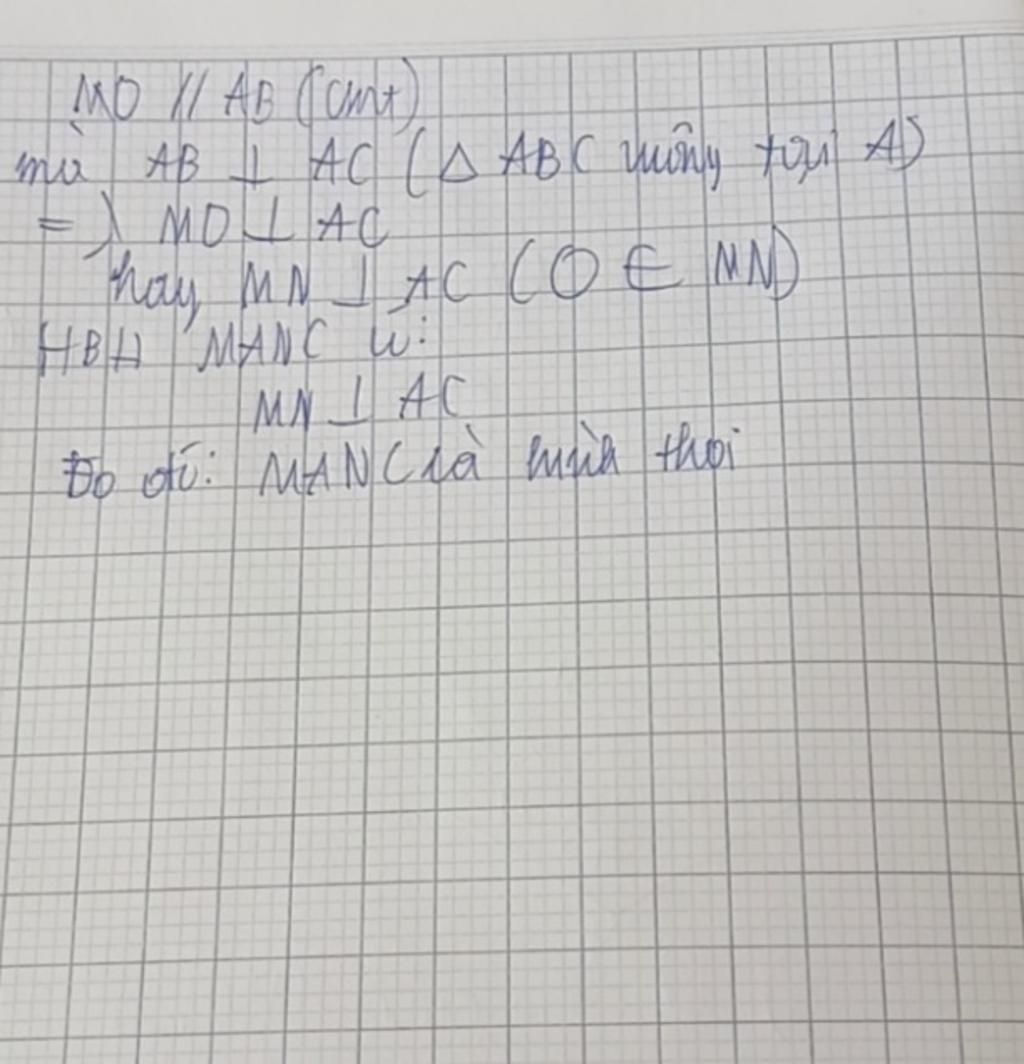 MO // AB (cmt)
mà AB ⊥ AC (Δ ABC vuông tại A)
=> MO ⊥ AC
hay MN ⊥ AC (O ∈ MN)
HBH MANC có:
MN ⊥ AC
Do đó: MANC là hình thoi